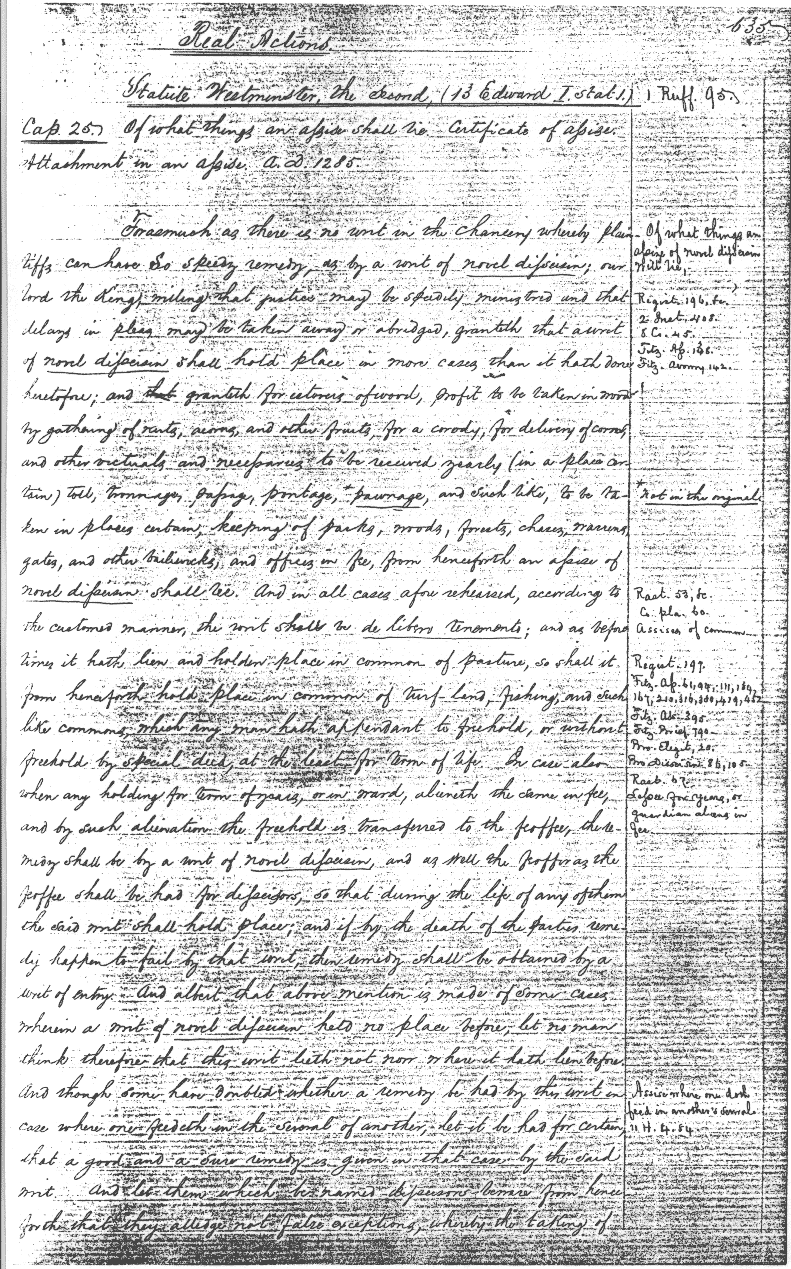 635
Real Actions
Statute Westminster, the second, (13 Edward I. stat. 1.) 1 Ruff. 95.
Cap. 25. Of what things an assise shall lie. Certificate of assise.
Attachment in an assise. A. D. 1285
Forasmuch as there is no writ in the Chancery whereby plain-
tiffs can have so speedy remedy, as by a writ of novel disseisin; our
lord the King, willing that justice may be speedily ministred and that
delays in pleas may be taken away or abridged, granteth that a writ
of novel disseisin shall hold place in more cases than it hath done
heretofore; and that granteth for estovers of wood, profit to be taken in wood
by gathering of nuts, acorns, and other fruits, for a corody, for delivery of corn,
and other victuals and necessaries to be received yearly (in a place cer-
tain) toll, tronnage, passage, pontage, *pawnage, and such like, to be ta-
ken in places certain, keeping of parks, woods, forests, chases, warrens,
gates, and other bailiwicks, and offices in fee, from henceforth an assise of
novel disseisin shall lie. And in all cases afore rehearsed, according to
the customed manner, the writ shall be de libero tenemento; and as before
times it hath lien and holden place in common of pasture, so shall it
from henceforth hold place in common of turf-land, fishing, and such
like commons, which any man hath appendant to freehold, or without
freehold by special deed, at the least for term of life. In case also
when any holding for term of years, or in ward, alieneth the same in fee,
and by such alienation the freehold is transferred to the feoffee, the re-
medy shall be by a writ of novel disseisin, and as well the feoffor as the
feoffee shall be had for disseisors, so that during the life of any of them
the said writ shall hold place; and if by the death of the parties reme-
dy happen to fail by that writ, then remedy shall be obtained by a
writ of entry. And albeit that above mention is made of some cases
wherein a writ of novel disseisin held no place before, let no man
think therefore that this writ lieth not now where it hath lien before.
And though some have doubted whether a remedy be had by this writ in
case where one feedeth in the several of another, let it be had for certain,
that a good and a sure remedy is given in that case by the said
writ. And let them which be named disseisors beware from hence
forth that they alledge not false exceptions, whereby the taking of
Of what things an
assise of novel disseisin
will lie,
Regist. 196, &c.
2 Inst. 408.
8 Co. 45.
Fitz. Ap. 148.
Fitz. Avowry 142.
*Not in the original
Rast. 53, &c.
Co. pla. 60.
Assises of common
Regist. 197.
Fitz. Ap. 61, 94, 111, 189,
167, 210, 316, 380, 419,
Fitz. Ab. 395
Fitz. Brief 790
Bro. Elegit, 20.
Bro. Disseisin 86, 105
Rast. 67
Lessee for years, or
guardian aliens in
fee.
Assise where one doth
feed in another's several
11 H. 4. 54